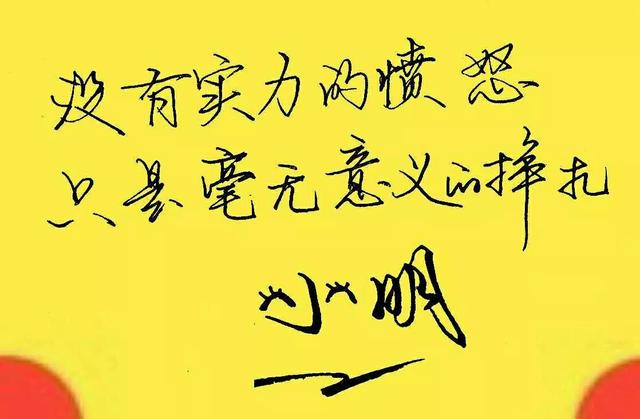 没有实力的愤怒
只是毫无意义的挣扎
小明